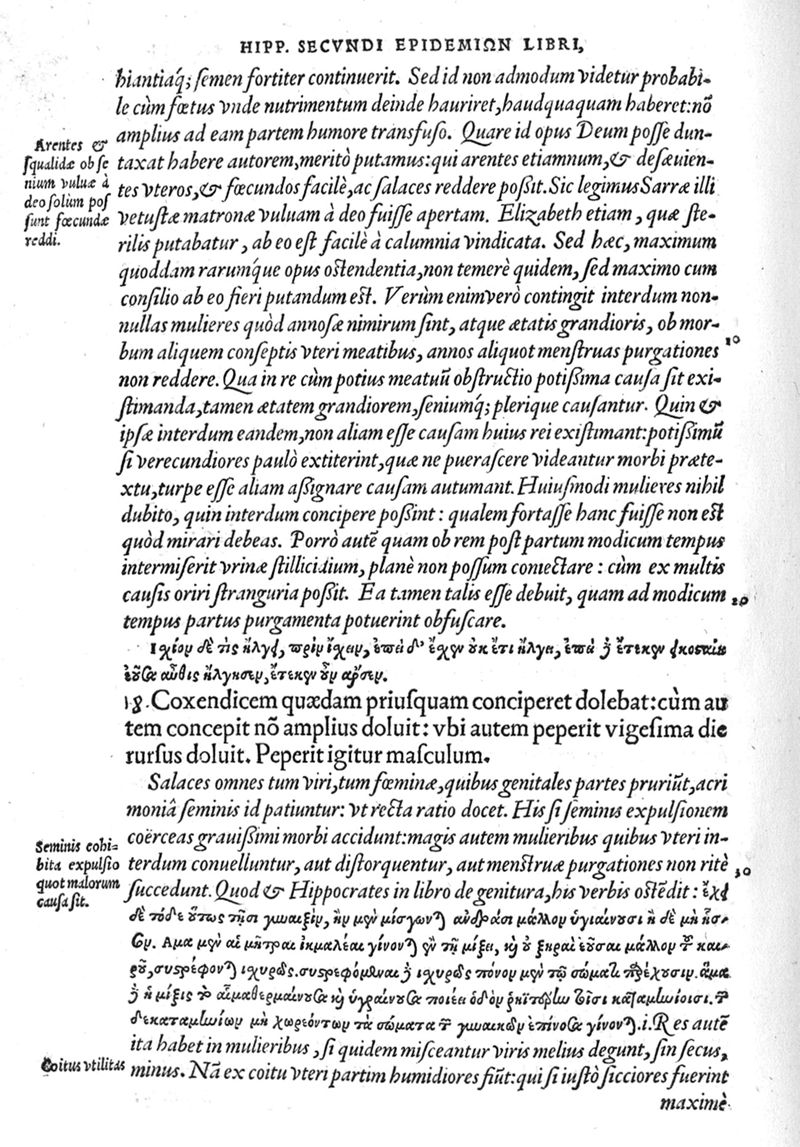 HIPP. SECVNDI EPIDEMIΩN LIBRI,
hiantiaq́; semen fortiter continuerit. Sed id non admodum videtur probabi-
le cùm fœtus vnde nutrimentum deinde hauriret, haudquaquam haberet: nõ
amplius ad eam partem humore transfuso. Quare id opus Deum posse dun-
taxat habere autorem, meritò putamus: qui arentes etiamnum, & desæuien-
tes vteros, & fœcundos facilè, ac salaces reddere possit. Sic legimus Sarræ illi
vetustæ matronæ vuluam à deo fuisse apertam. Elizabeth etiam, quæ ste-
rilis putabatur, ab eo est facilè à calumnia vindicata. Sed hæc, maximum
quoddam rarumq́ue opus ostendentia, non temerè quidem, sed maximo cum
consilio ab eo fieri putandum est. Verùm enimverò contingit interdum non-
nullas mulieres quòd annosæ nimirum sint, atque ætatis grandioris, ob mor-
bum aliquem conseptis vteri meatibus, annos aliquot menstruas purgationes
non reddere. Qua in re cùm potius meatuũ obstructio potissima causa sit exi-
stimanda, tamen ætatem grandiorem, seniumq́; plerique causantur. Quin &
ipsæ interdum eandem, non aliam esse causam huius rei existimant: potissimũ
si verecundiores paulò extiterint, quæ ne puerascere videantur morbi præte-
xtu, turpe esse aliam assignare causam autumant. Huiusmodi mulieres nihil
dubito, quin interdum concipere possint: qualem fortasse hanc fuisse non est
quòd mirari debeas. Porrò autẽ quam ob rem post partum modicum tempus
intermiserit vrinæ stillicidium, planè non possum coniectare: cùm ex multis
causis oriri stranguria possit. Ea tamen talis esse debuit, quam ad modicum
tempus partus purgamenta potuerint obfuscare.
Ἰχίον δέ τις ἤλγει, πρὶν ἴχειν, ἐπεὶ δ' ἔχεν οὐκ ἔτι ἤλγει, ἐπεὶ δὲ ἔτεκεν εἰκοσταία
ἐοῦσα αὖθις ἤλγησεν, ἔτεκεν οὖν ἄρσεν.
18. Coxendicem quædam priusquam conciperet dolebat: cùm au
tem concepit nõ amplius doluit: vbi autem peperit vigesima die
rursus doluit. Peperit igitur masculum.
Salaces omnes tum viri, tum fœminæ, quibus genitales partes pruriũt, acri
moniâ seminis id patiuntur: vt recta ratio docet. His si seminis expulsionem
coërceas grauissimi morbi accidunt: magis autem mulieribus quibus vteri in-
terdum conuelluntur, aut distorquentur, aut menstruæ purgationes non ritè
succedunt. Quod & Hippocrates in libro de genitura, his verbis ostẽdit: ἔχει
δὲ τόδε οὕτως τῇσι γυναιξὶν, ἢν μὲν μίσγωνται ἀνδράσι μᾶλλον ὑγιαίνουσι ἢ δὲ μὴ ἧσ-
σον. Ἅμα μὲν αἱ μῆτραι ἰκμαλέαι γίνονται ἐν τῇ μίξει, καὶ οὐ ξηραὶ ἐοῦσαι μᾶλλον τοῦ και-
ροῦ, συστρέφονται ἰχυρῶς. συστρεφόμεναι δὲ ἰχυρῶς πόνον μὲν τῷ σώματι παρέχουσιν. ἅμα
δὲ ἡ μίξις τὸ αἷμα θερμαίνουσα καὶ ὑγραίνουσα ποιέει ὁδὸν ῥηϊτέρην τοῖσι καταμηνίοισι. τῶν
δὲ καταμηνίων μὴ χωρεόντων τὰ σώματα τῶν γυναικῶν ἐπίνοσα γίνονται. i. Res autẽ
ita habet in mulieribus, si quidem misceantur viris melius degunt, sin secus,
minus. Nã ex coitu vteri partim humidiores fiũt: qui si iustò sicciores fuerint
maximè
Arentes &
squalidæ ob se
nium vuluæ à
deo solum pos
sunt fœcundæ
reddi.
Seminis cohi-
bita expulsio
quot malorum
causa sit.
Coitus vtilitas
10
20
30